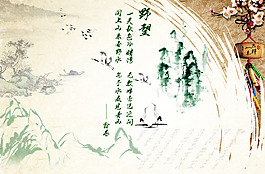 野望
一天秋色冷晴湾
无数峰峦远近间
闲上山来看野水
忽于水底见青山
——翁卷